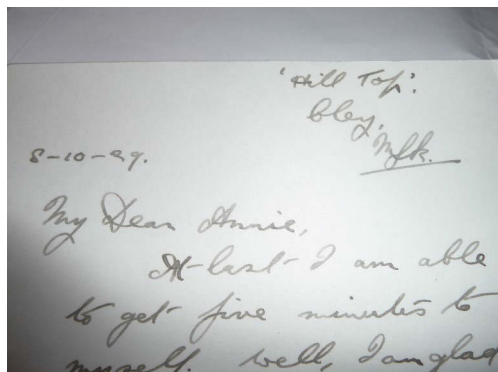 'Hill Top'.
Cley,
Nfk.
8-10-29.
My Dear Annie,
At-last I am able
to get five minutes to
myself. Well, I am glad